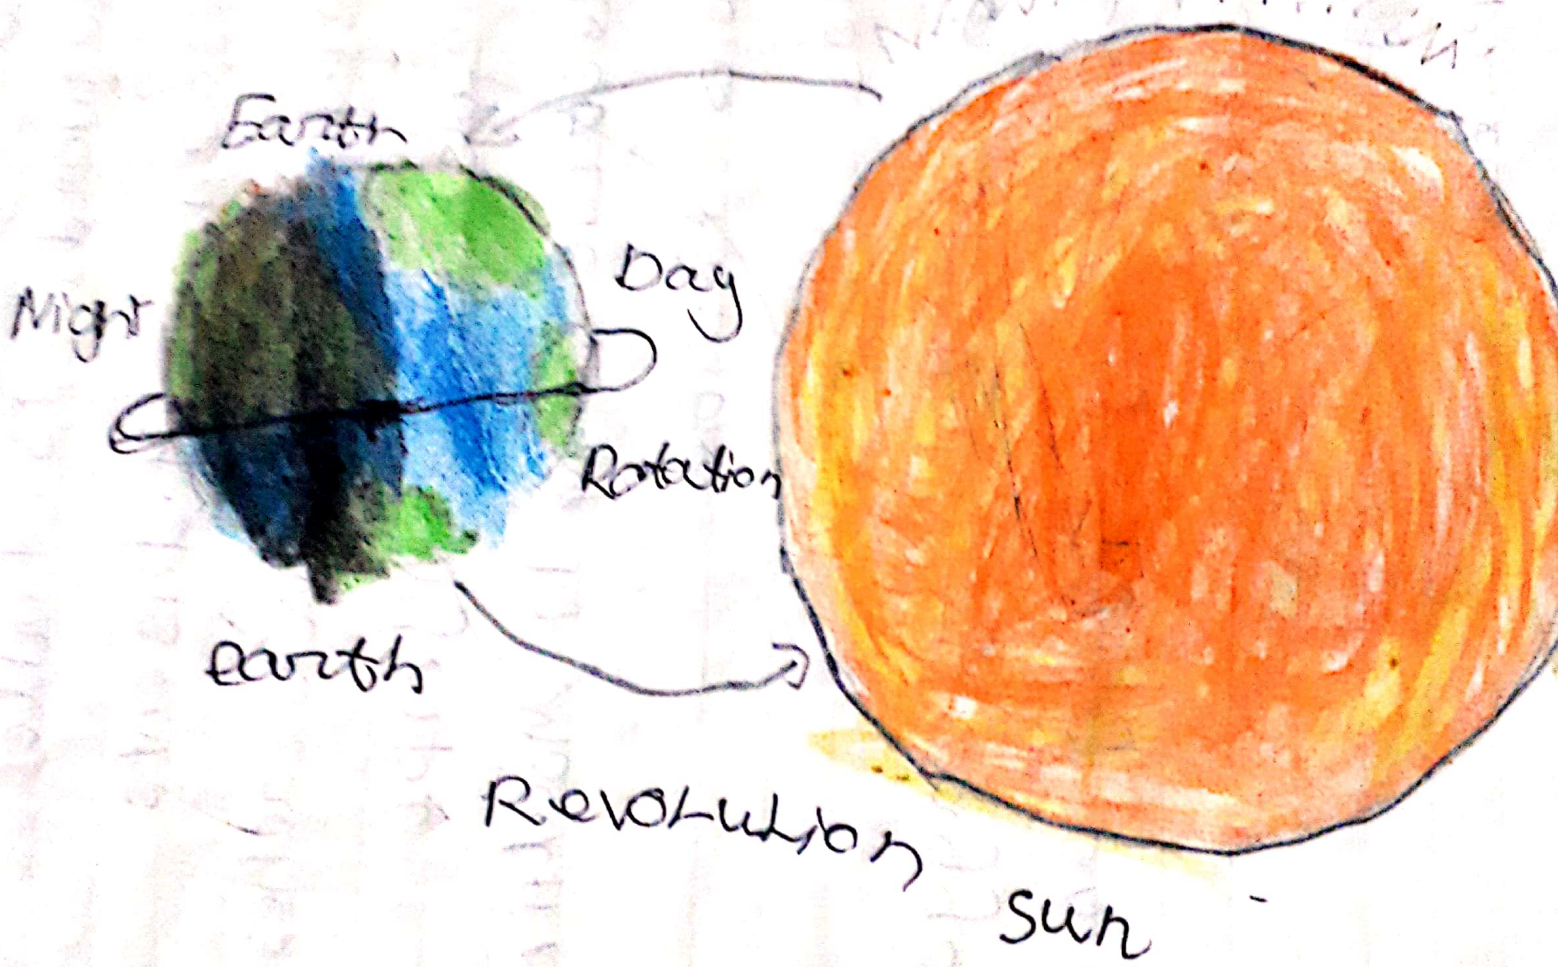 Earth
Day
Night
Rotation
earth
Revolution
sun